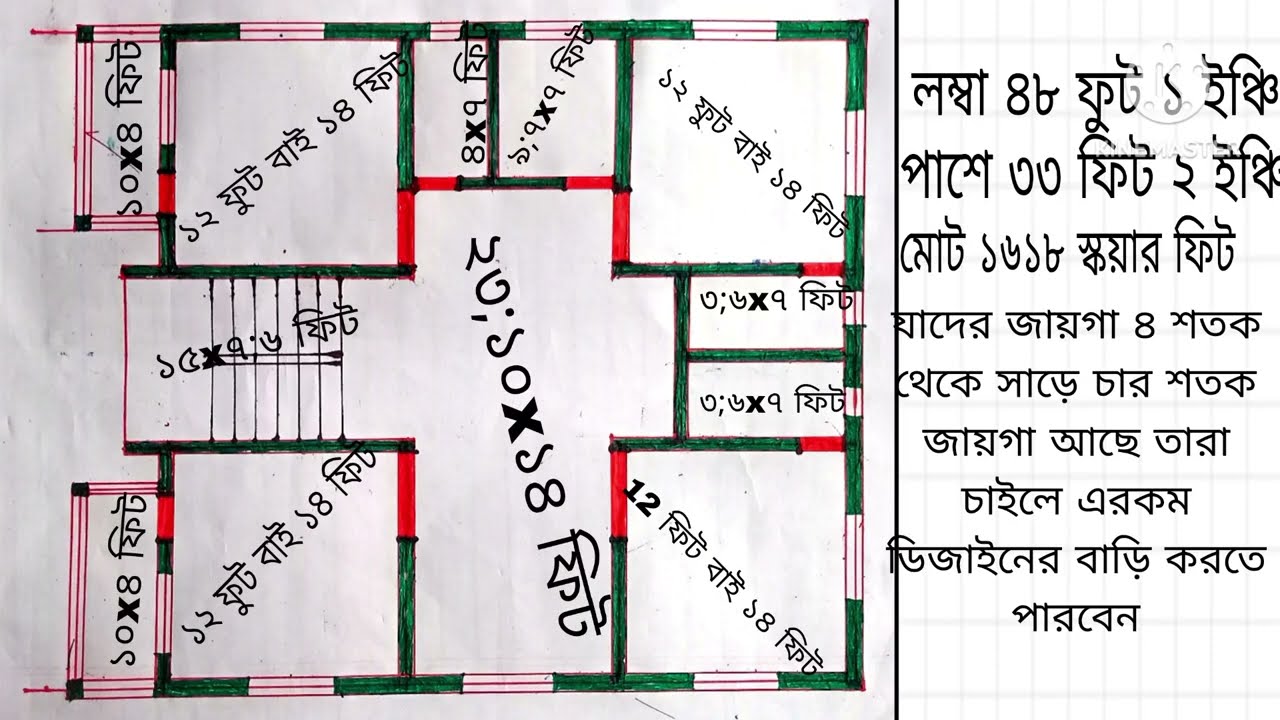 ১০x৪ ফিট
১২ ফুট বাই ১৪ ফিট
৪x৭ ফিট
৯;৭x৭ ফিট
১২ ফুট বাই ১৪ ফিট
১৫x৭;৬ ফিট
২৩;১০x১৪ ফিট
৩;৬x৭ ফিট
৩;৬x৭ ফিট
১০x৪ ফিট
১২ ফুট বাই ১৪ ফিট
12 ফিট বাই ১৪ ফিট
লম্বা ৪৮ ফুট ১ ইঞ্চি
KINEMASTER
পাশে ৩৩ ফিট ২ ইঞ্চি
মোট ১৬১৮ স্কয়ার ফিট
যাদের জায়গা ৪ শতক
থেকে সাড়ে চার শতক
জায়গা আছে তারা
চাইলে এরকম
ডিজাইনের বাড়ি করতে
পারবেন